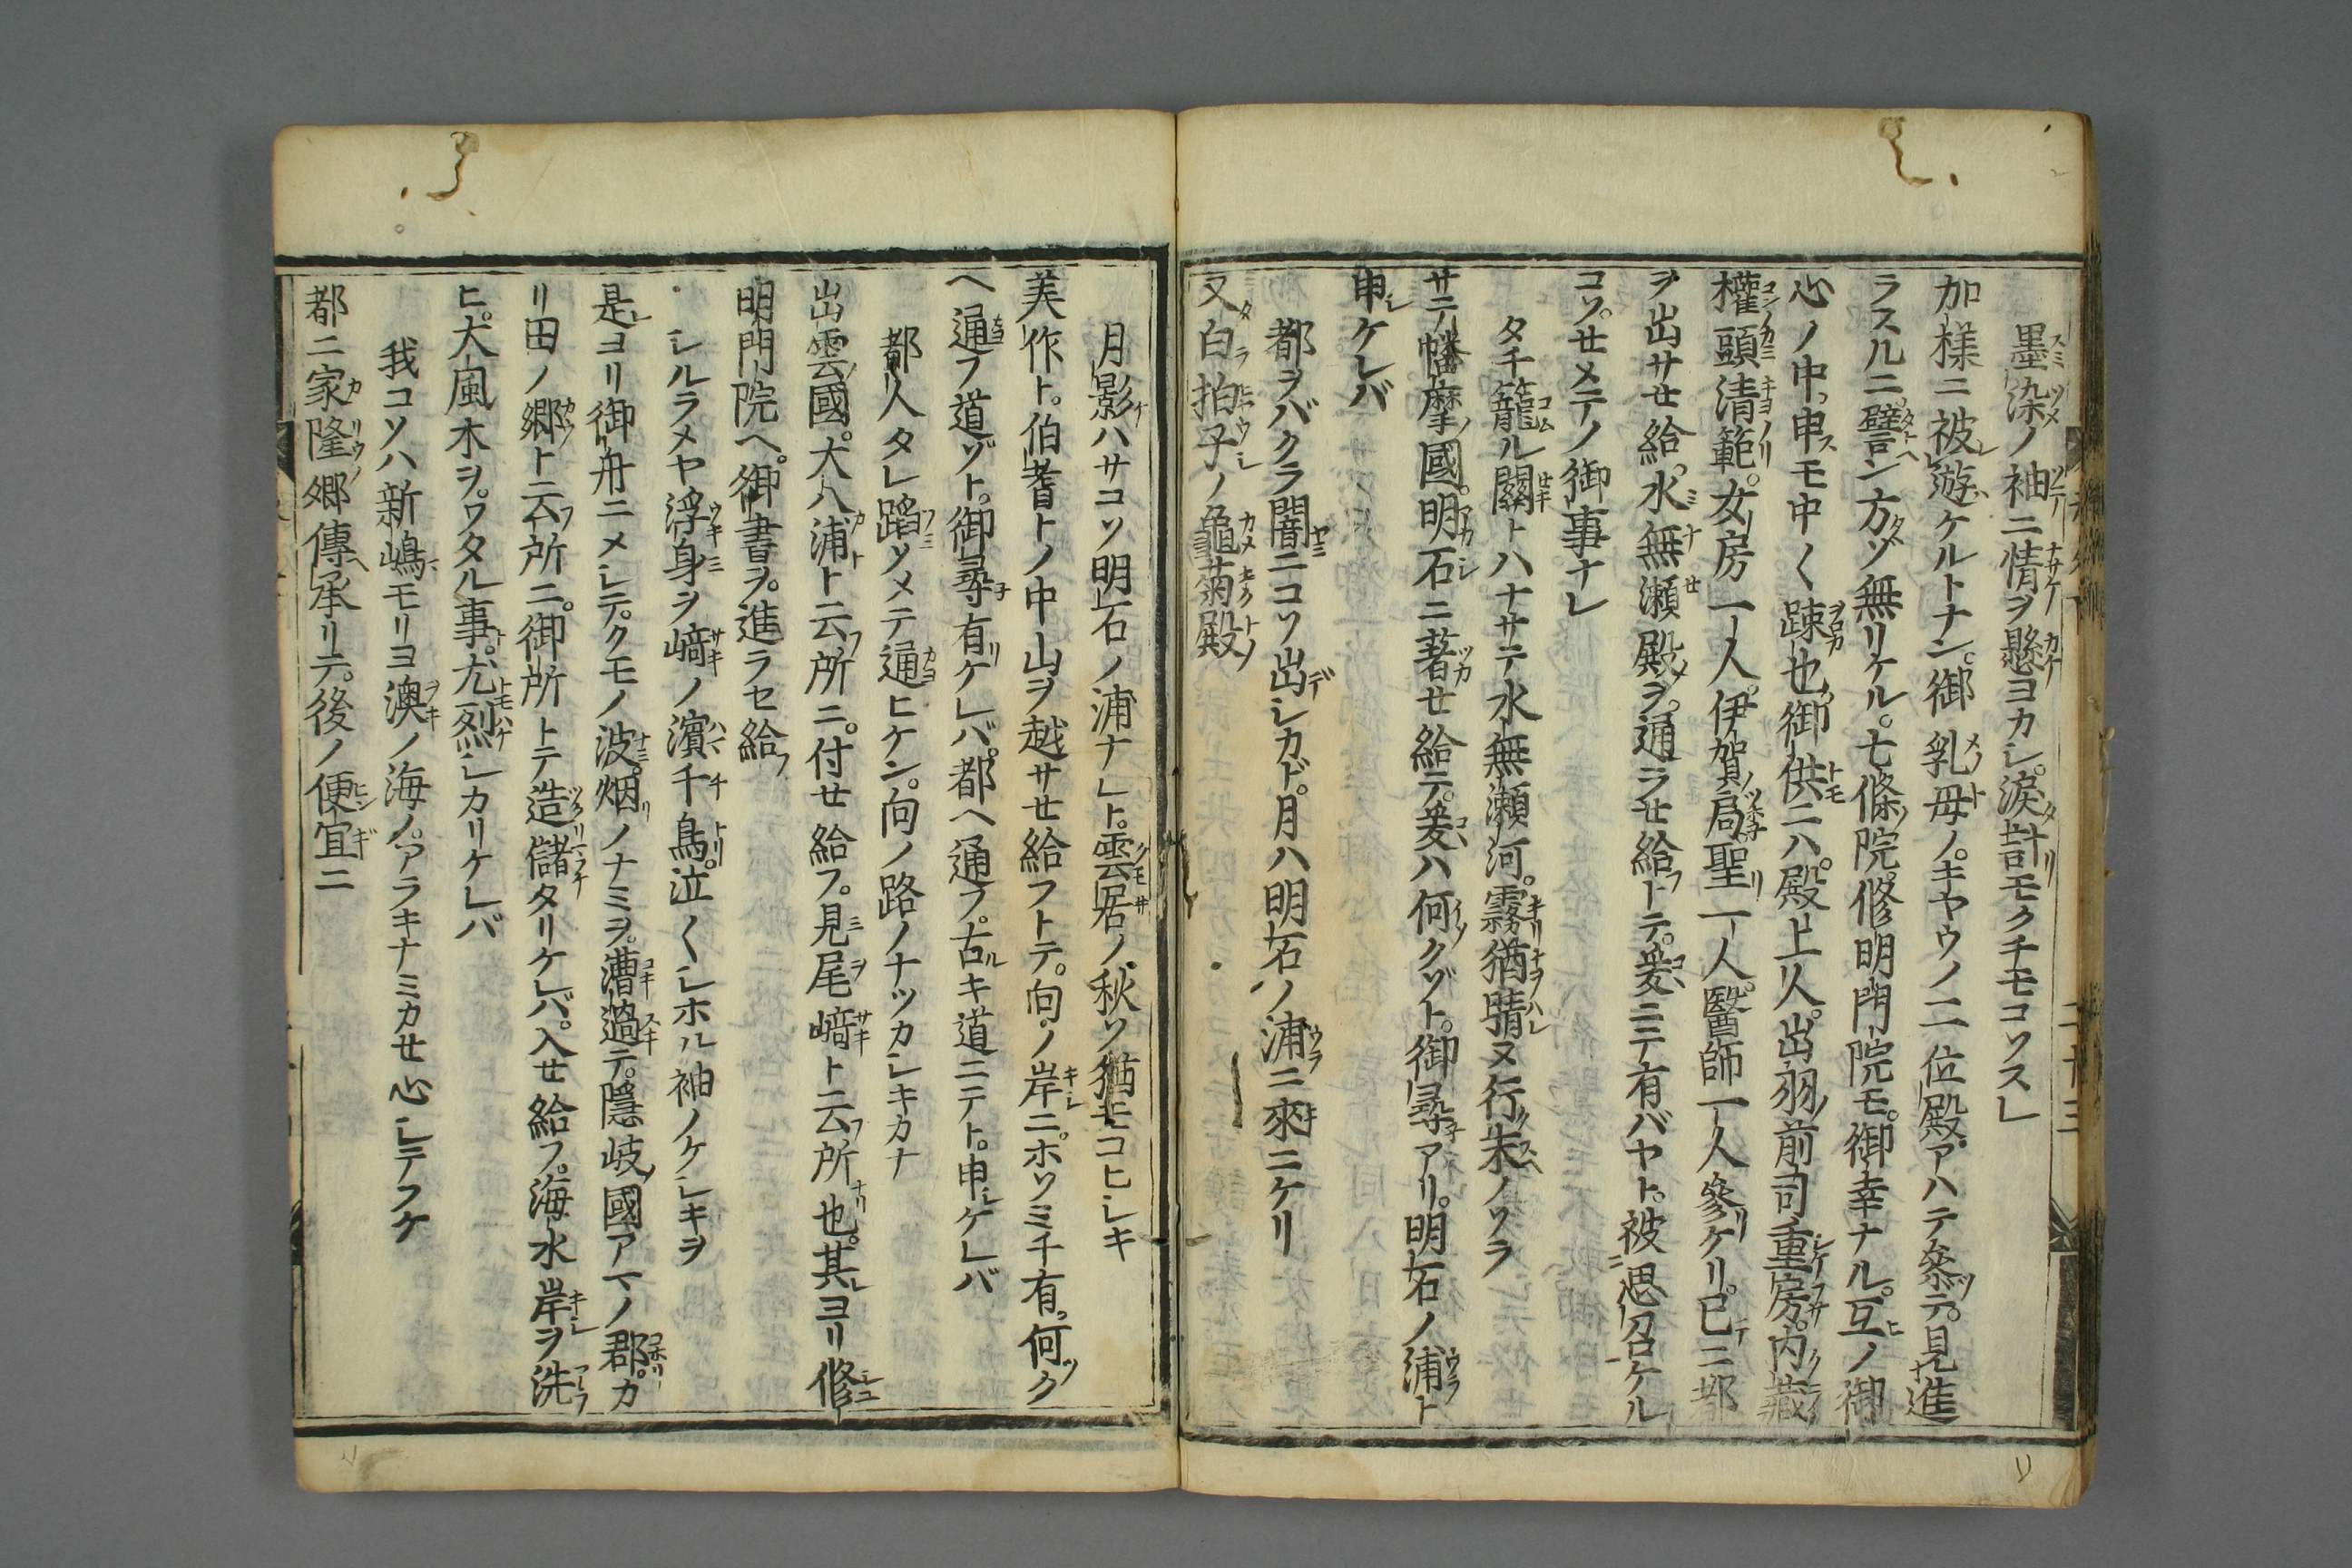 墨染ノ袖ニ情ヲ懸ヨカシ。涙計モクチモコソスレ
加様ニ被遊ケルトナン。御乳母ノ。キヤウノ二位殿。アハテ參テ。見進
ラスルニ。譬ン方ゾ無リケル。七條院。修明門院モ。御幸ナル。互ノ御
心ノ中。申モ中〱踈也。御供ニハ。殿上人。出羽前司重房。内藏
權頭清範。女房一人。伊賀局。聖一人。醫師一人參ケリ。已ニ都
ヲ出サせ給。水無瀬殿ヲ。通ラせ給トテ。爰ニテ有バヤト。被思召ケル
コソ。せメテノ御事ナレ
タチ籠ル關トハナサテ水無瀬河。霧猶晴ヌ行末ノソラ
サテ幡摩國。明石ニ著せ給テ。爰ハ何クゾト。御尋アリ。明石ノ浦ト
申ケレバ
都ヲバクラ闇ニコソ出シカド。月ハ明石ノ浦ニ來ニケリ
又白拍子ノ龜菊殿
月影ハサコソ明石ノ浦ナレト。雲居ノ秋ソ猶モコヒシキ
美作ト。伯耆トノ中山ヲ越サせ給フトテ。向ノ岸ニ。ホソミチ有。何ク
ヘ通フ道ゾト。御尋有ケレバ。都ヘ通フ。古キ道ニテト。申ケレバ
都人タレ蹈ソメテ通ヒケン。向ノ路ノナツカシキカナ
出雲國。大八浦ト云所ニ。付せ給フ。見尾﨑ト云所也。其ヨリ修
明門院ヘ。御書ヲ。進ラセ給フ
シルラメヤ浮身ヲ﨑ノ濱千鳥。泣〱シホル袖ノケシキヲ
是ヨリ御舟ニメシテ。クモノ波。烟ノナミヲ。漕過テ。隱岐國アマノ郡。カ
リ田ノ郷ト云所ニ。御所トテ造儲タリケレバ。入せ給フ。海水岸ヲ洗
ヒ。大風木ヲ。ワタル事。尤烈シカリケレバ
我コソハ新嶋モリヨ澳ノ海ノ。アラキナミカせ心シテフケ
都ニ家隆郷傳承リテ。後ノ便宜ニ